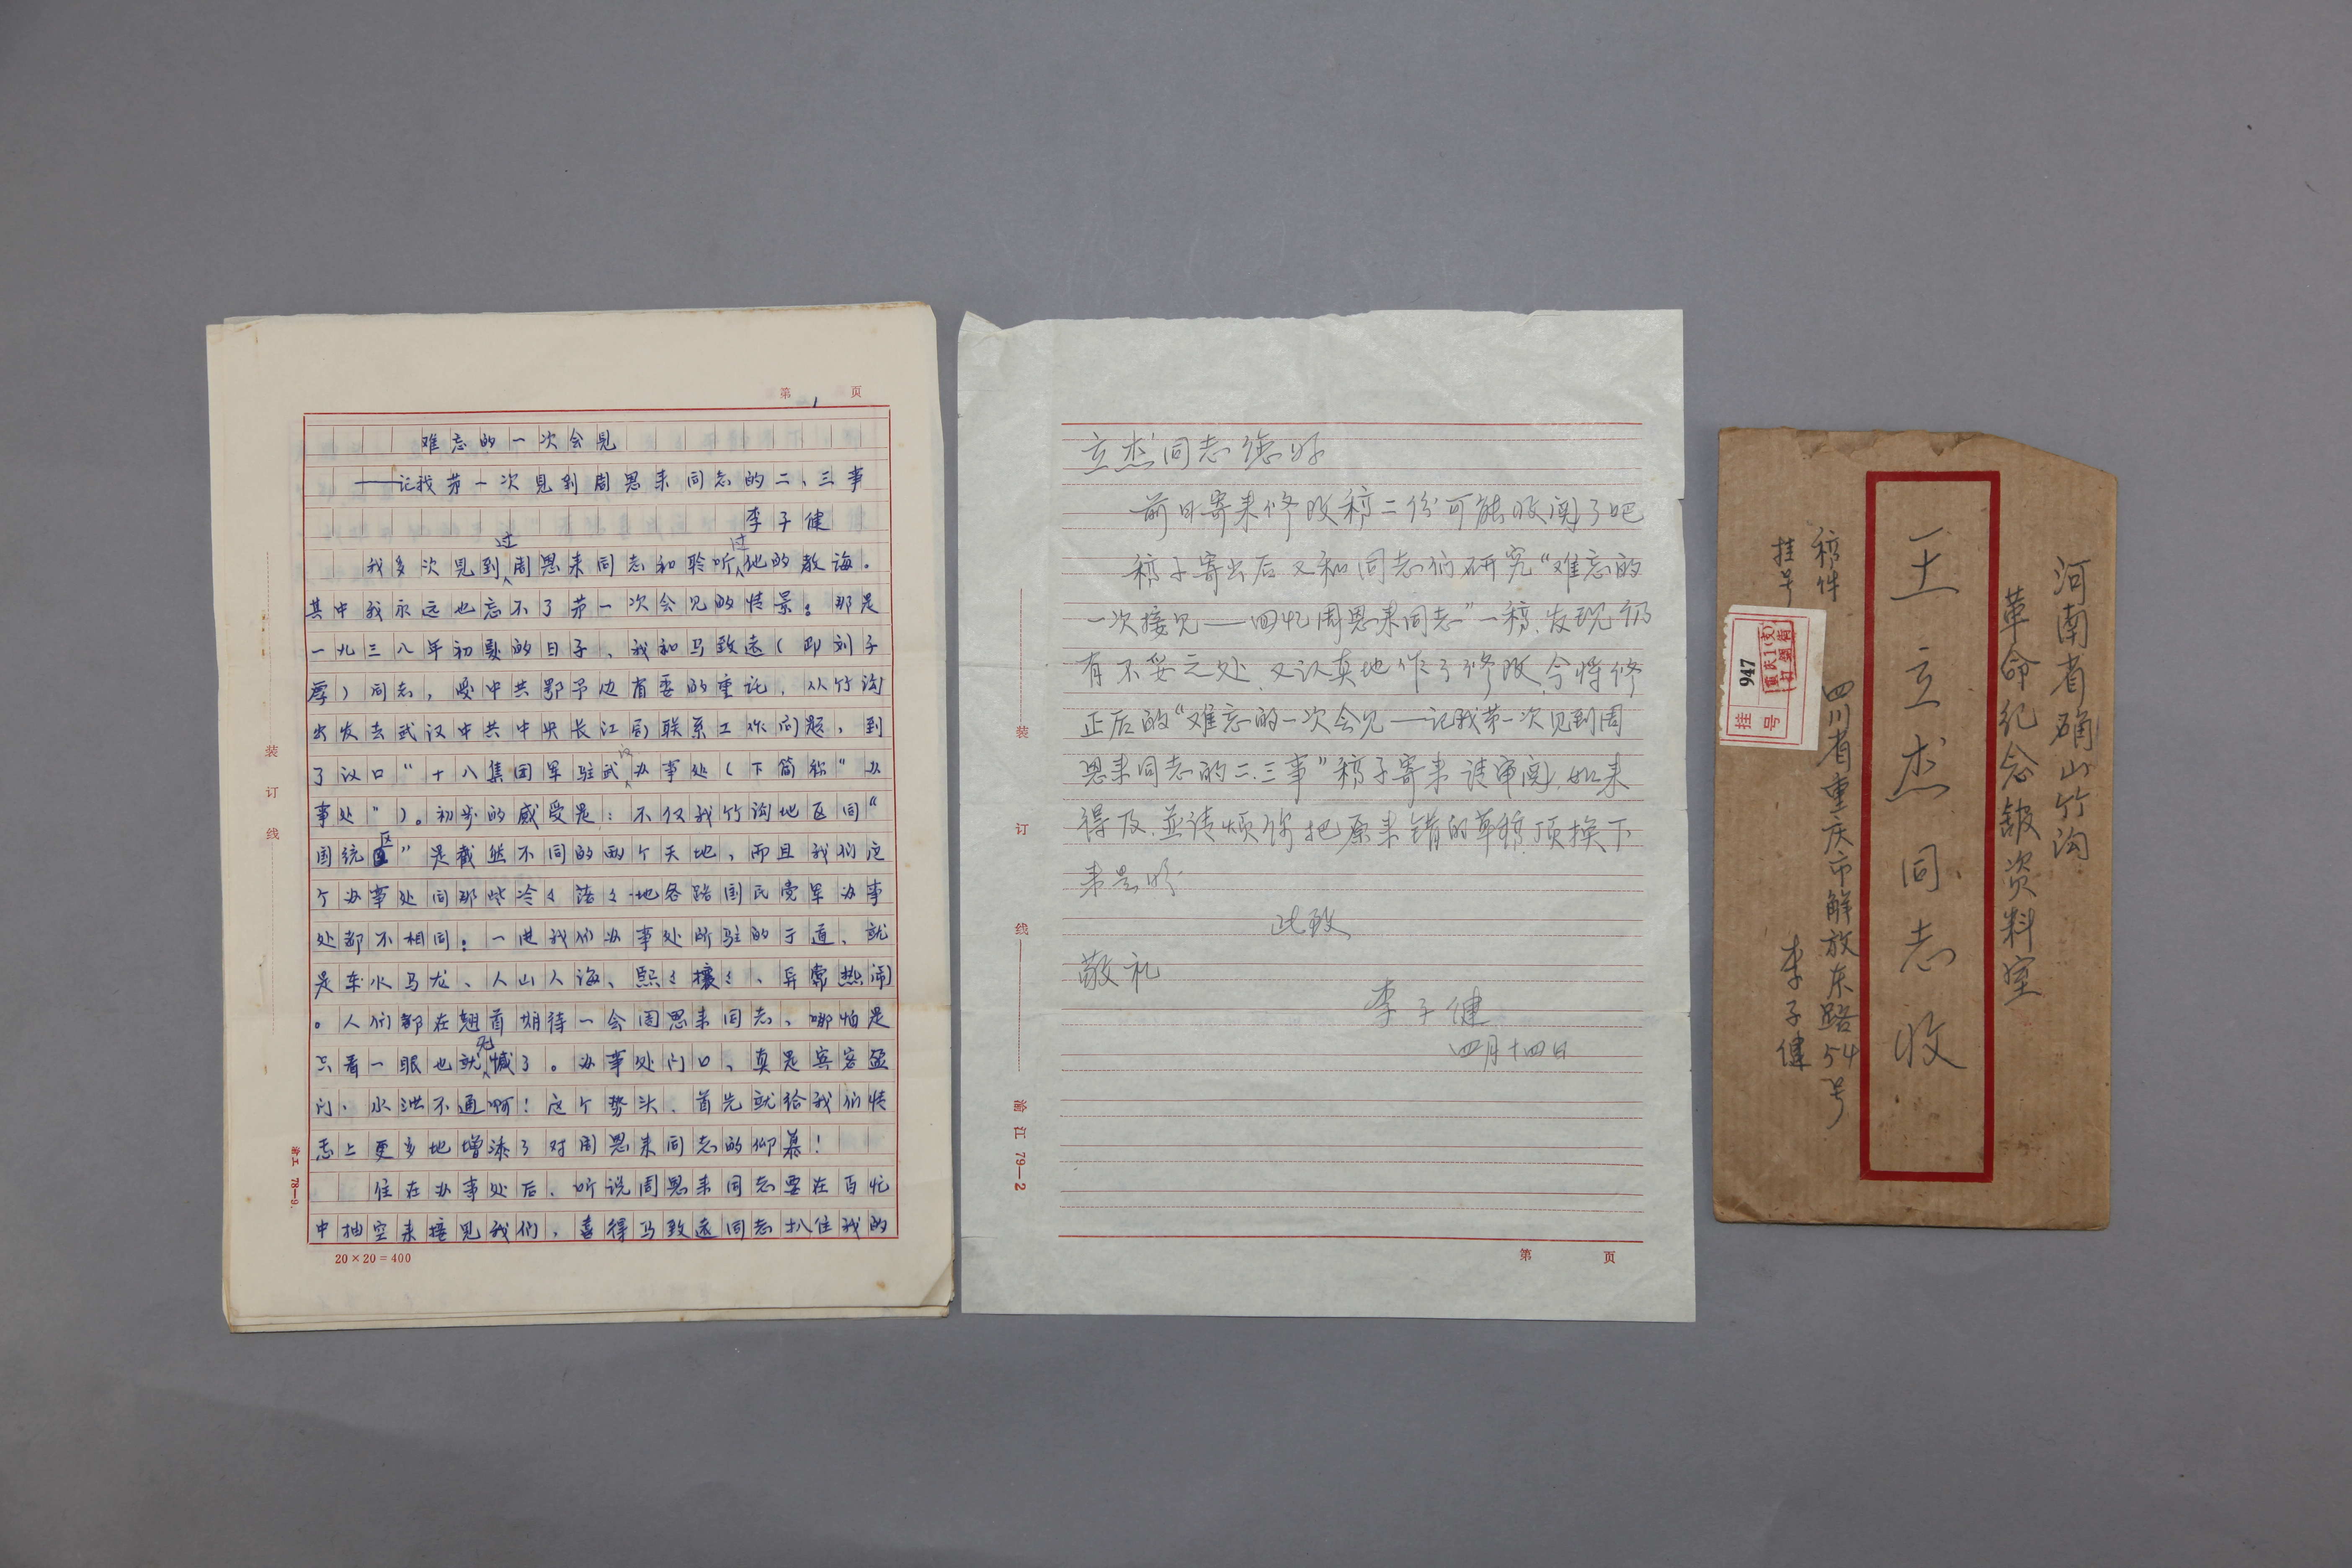 第 1 页
难忘的一次会见
——记我第一次见到周恩来同志的二、三事
李子健
我多次见到过周恩来同志和聆听过他的教诲。
其中我永远也忘不了第一次会见的情景。那是
一九三八年初夏的日子、我和马致远（即刘子
厚）同志，受中共鄂予边省委的重托，从竹沟
出发去武汉中共中央长江局联系工作问题，到
了汉口“十八集团军驻武汉办事处（下简称“办
事处”）。初步的感受是：不仅我竹沟地区同“
国统区”是截然不同的两个天地，而且我们这
个办事处同那些冷々落々地各路国民党军办事
处都不相同：一进我们办事处所驻的于道、就
是车水马龙、人山人海、熙々攘々、异常热闹
。人们都在翘首期待一会周恩来同志、哪怕是
只看一眼也就无憾了。办事处门口、真是宾客盈
门、水泄不通啊！这个势头、首先就给我们情
志上更多地增添了对周恩来同志的仰慕！
住在办事处后、听说周恩来同志要在百忙
中抽空来接见我们，喜得马致远同志扒住我的
20×20=400
装订线
渝工 78—9.
立杰同志您好
前日寄来修改稿二份可能收阅了吧
稿子寄出后又和同志们研究“难忘的
一次接见——回忆周恩来同志”一稿、发现仍
有不妥之处、又认真地作了修改、今将修
正后的“难忘的一次会见——记我第一次见到周
恩来同志的二、三事”稿子寄来请审阅，如来
得及、並请烦你把原来错的草稿顶换下
来是盼
此致
敬礼
李子健
四月十四日
装订线
渝江 79—2
第 页
河南省确山竹沟
革命纪念馆资料室
王立杰同志收
四川省重庆市解放东路54号
李子健
稿件
挂号
挂号
947
重庆1(支)